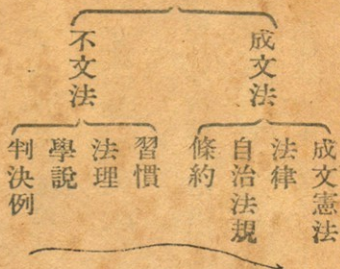 成文法
成文憲法
法律
自治法規
條約
不文法
習慣
法理
學說
判決例